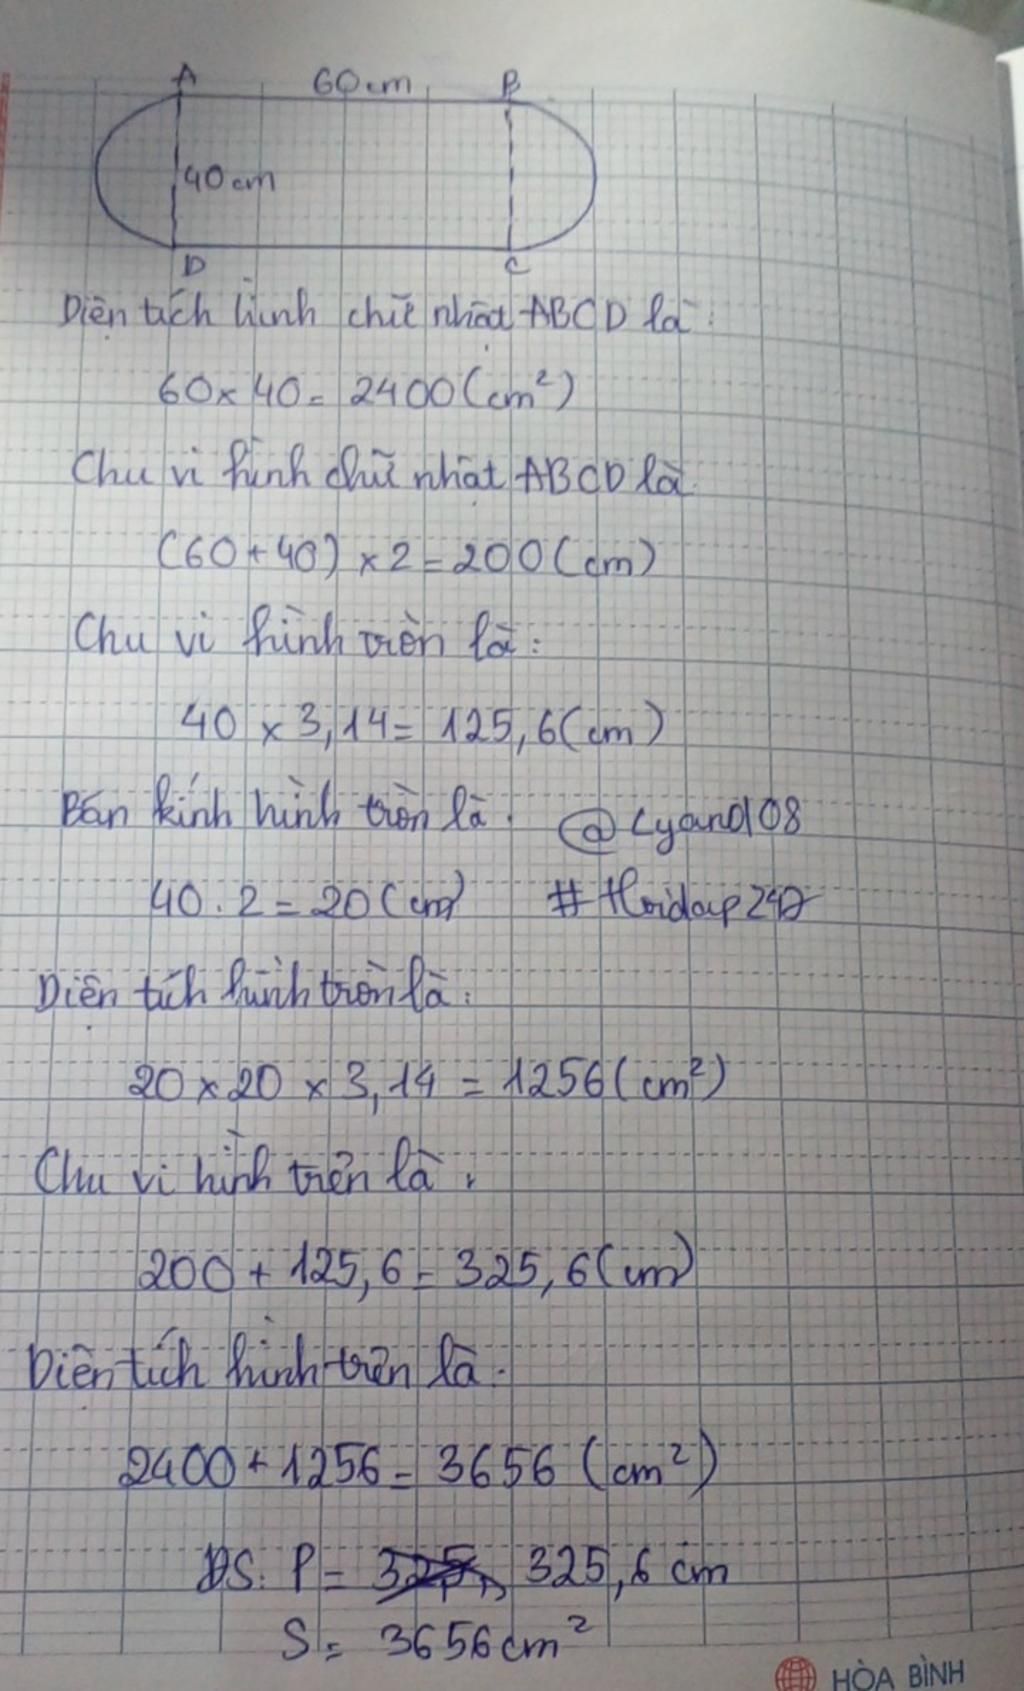 A 60cm B
40cm
D C
Diện tích hình chữ nhật ABCD là:
60 × 40 = 2400 (cm²)
Chu vi hình chữ nhật ABCD là
(60 + 40) × 2 = 200 (cm)
Chu vi hình tròn là:
40 × 3,14 = 125,6 (cm)
Bán kính hình tròn là: @Lyand108
40 : 2 = 20 (cm) #Hoidap247
Diện tích hình tròn là:
20 × 20 × 3,14 = 1256 (cm²)
Chu vi hình trên là:
200 + 125,6 = 325,6 (cm)
Diện tích hình trên là:
2400 + 1256 = 3656 (cm²)
ĐS: P = 325,6 cm
S = 3656 cm²
HÒA BÌNH